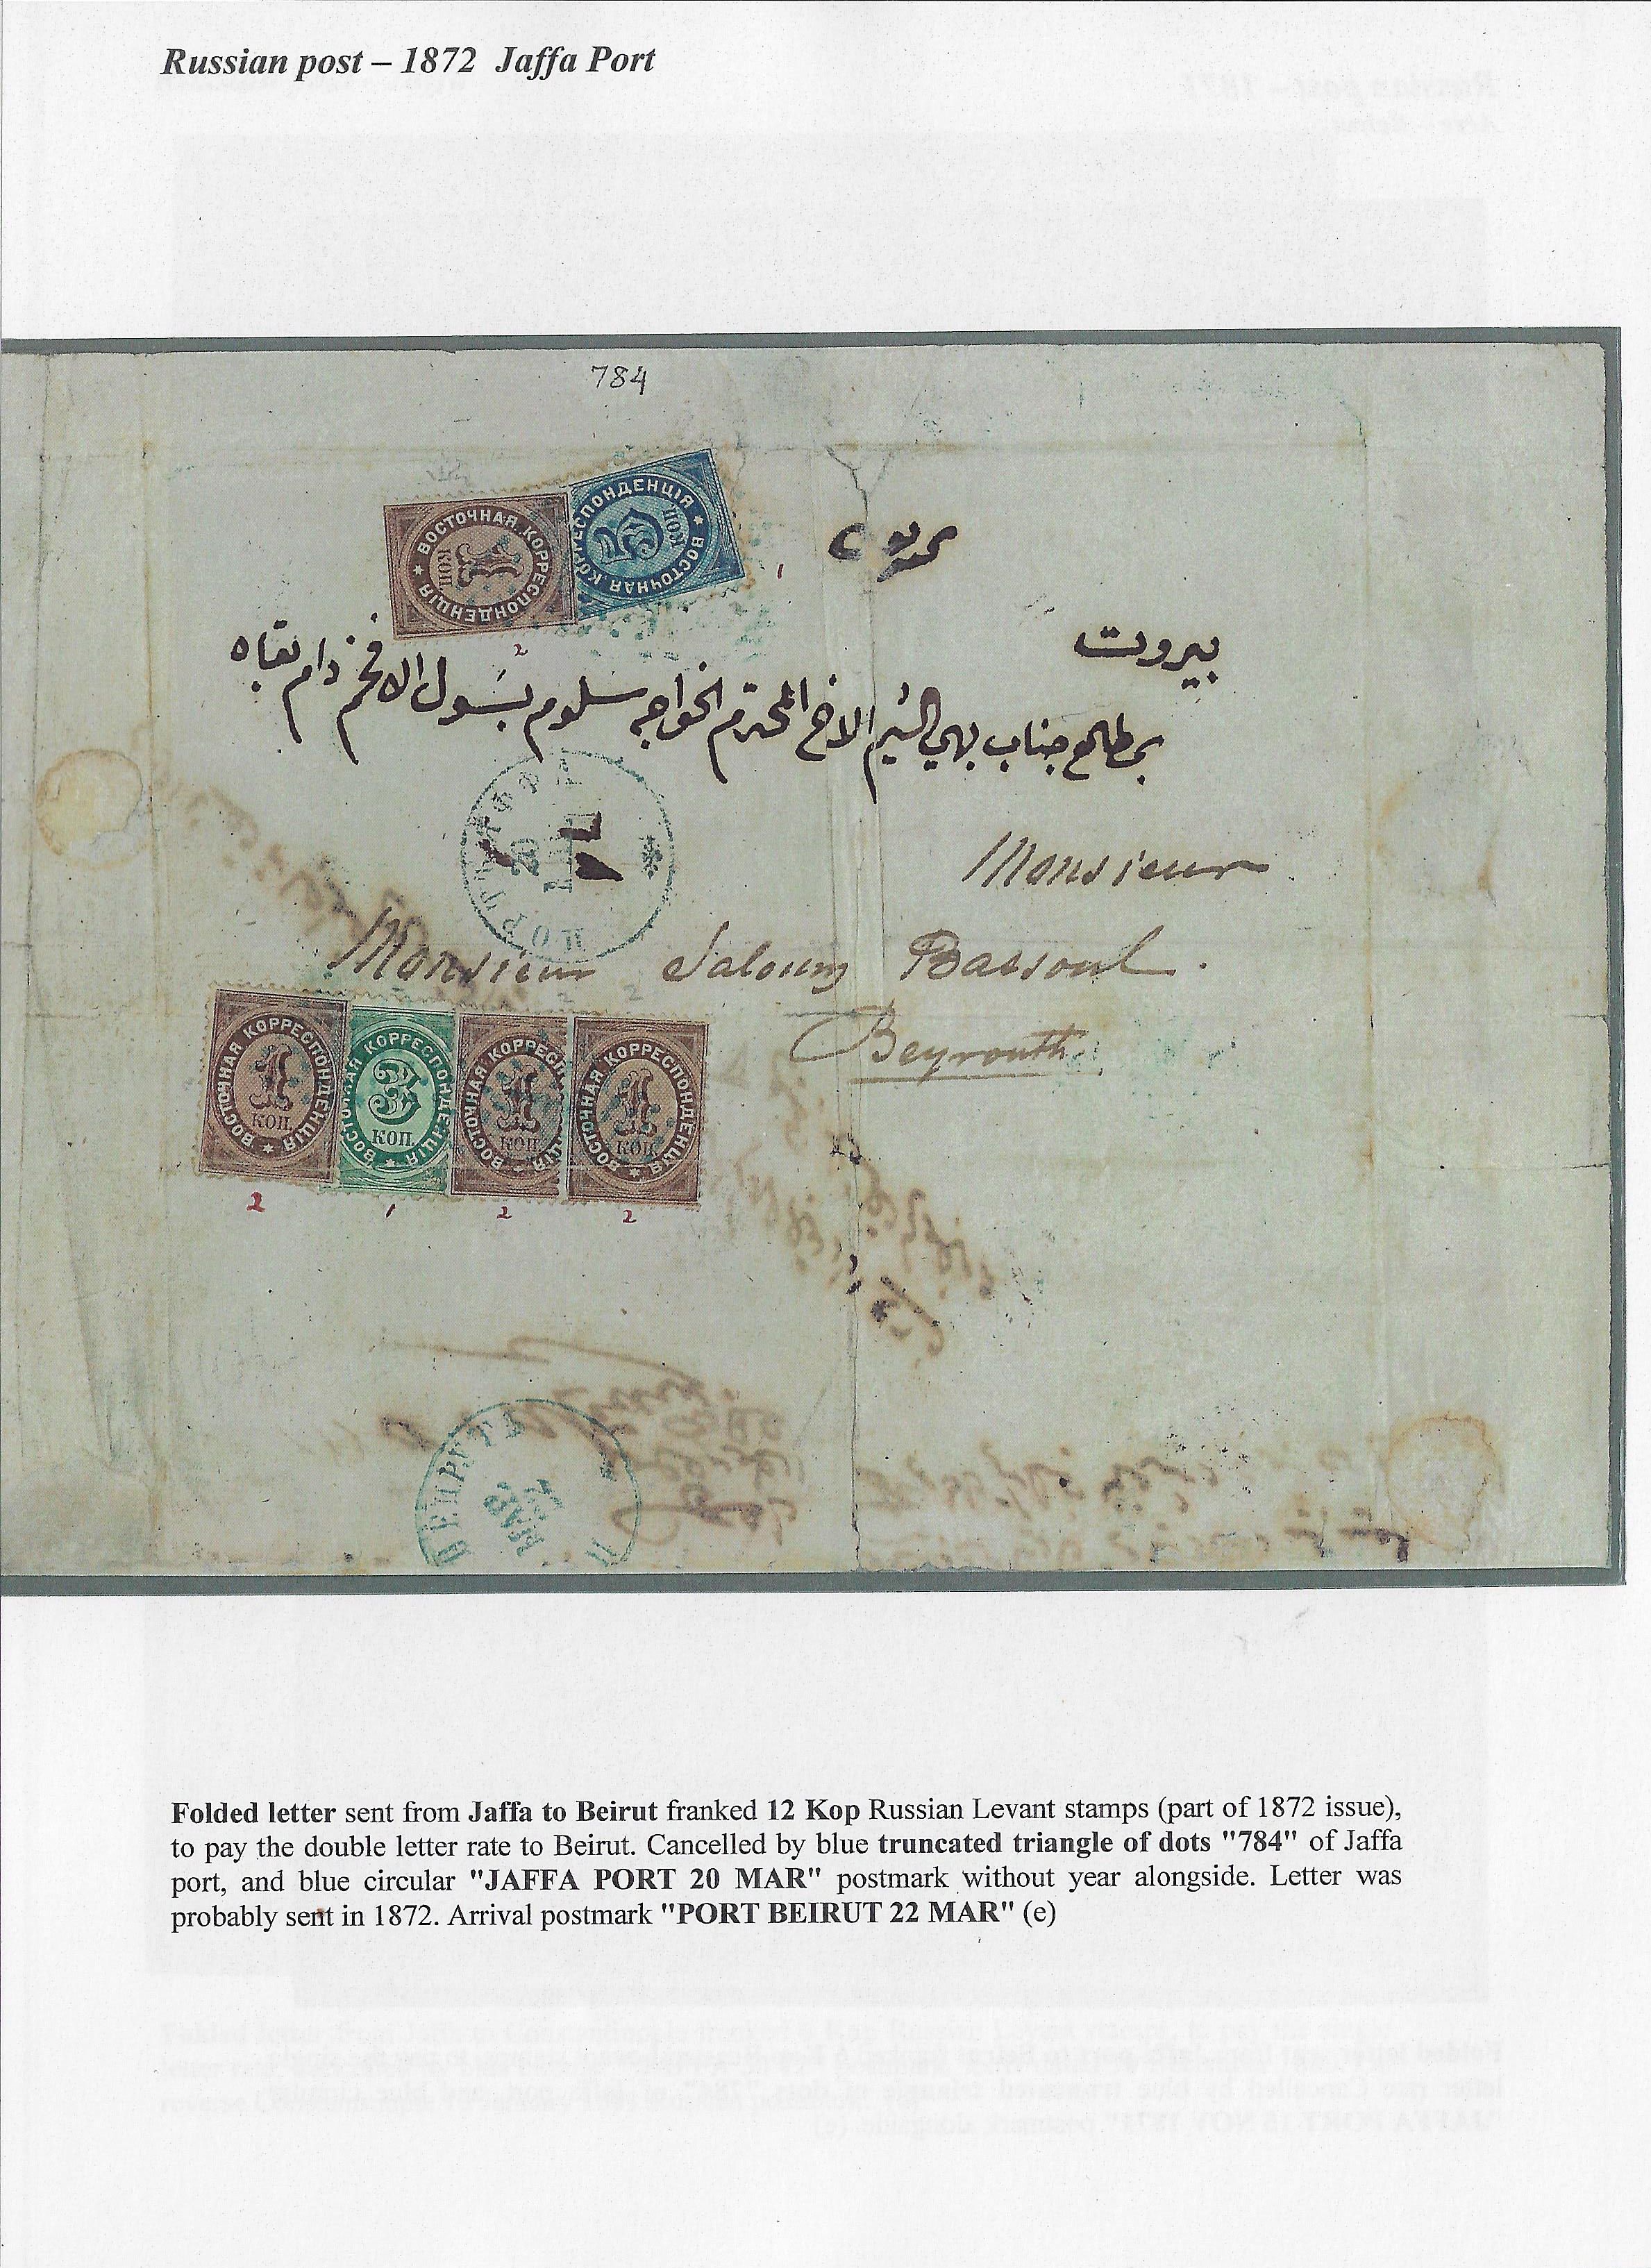 Russian post – 1872 Jaffa Port
784
ВОСТОЧНАЯ КОРРЕСПОНДЕНЦІЯ
1 КОП.
ВОСТОЧНАЯ КОРРЕСПОНДЕНЦІЯ
5 КОП
بيروت
بمطالع جناب بهي الشيم الاخ المحترم الخواجه سلوم بسول الافخم دام بقاه
ПОРТЪ ЯФФА
20
МАР
Monsieur
Monsieur Saloum Bassoul.
Beyrouth
ВОСТОЧНАЯ КОРРЕСПОНДЕНЦІЯ
1 КОП.
ВОСТОЧНАЯ КОРРЕСПОНДЕНЦІЯ
3 КОП.
ВОСТОЧНАЯ КОРРЕСПОНДЕНЦІЯ
1 КОП.
ВОСТОЧНАЯ КОРРЕСПОНДЕНЦІЯ
1 КОП.
2 1 2 2
БЕЙРУТЪ
22
МАР
Folded letter sent from Jaffa to Beirut franked 12 Kop Russian Levant stamps (part of 1872 issue),
to pay the double letter rate to Beirut. Cancelled by blue truncated triangle of dots "784" of Jaffa
port, and blue circular "JAFFA PORT 20 MAR" postmark without year alongside. Letter was
probably sent in 1872. Arrival postmark "PORT BEIRUT 22 MAR" (e)